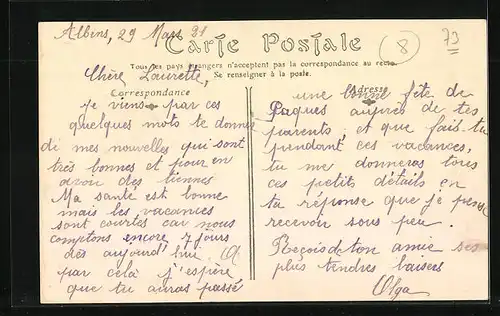 Albens, 29 Mars 31
8
73
Carte Postale
Tous les pays étrangers n'acceptent pas la correspondance au recto
Se renseigner à la poste.
Chère Laurette,
Correspondance
Adresse
je viens par ces
quelques mots te donner
de mes nouvelles qui sont
très bonnes et pour en
avoir des tiennes
Ma santé est bonne
mais les vacances
sont courtes car nous
comptons encore 7 jours
dès aujourd'hui.
par cela j'espère
que tu auras passé
une bonne fête de
Paques auprès de tes
parents, et que fais-tu
pendant ces vacances,
tu me donneras tous
ces petits détails en
ta réponse que je pense
recevoir sous peu.
Reçois de ton amie ses
plus tendres baisers
Olga